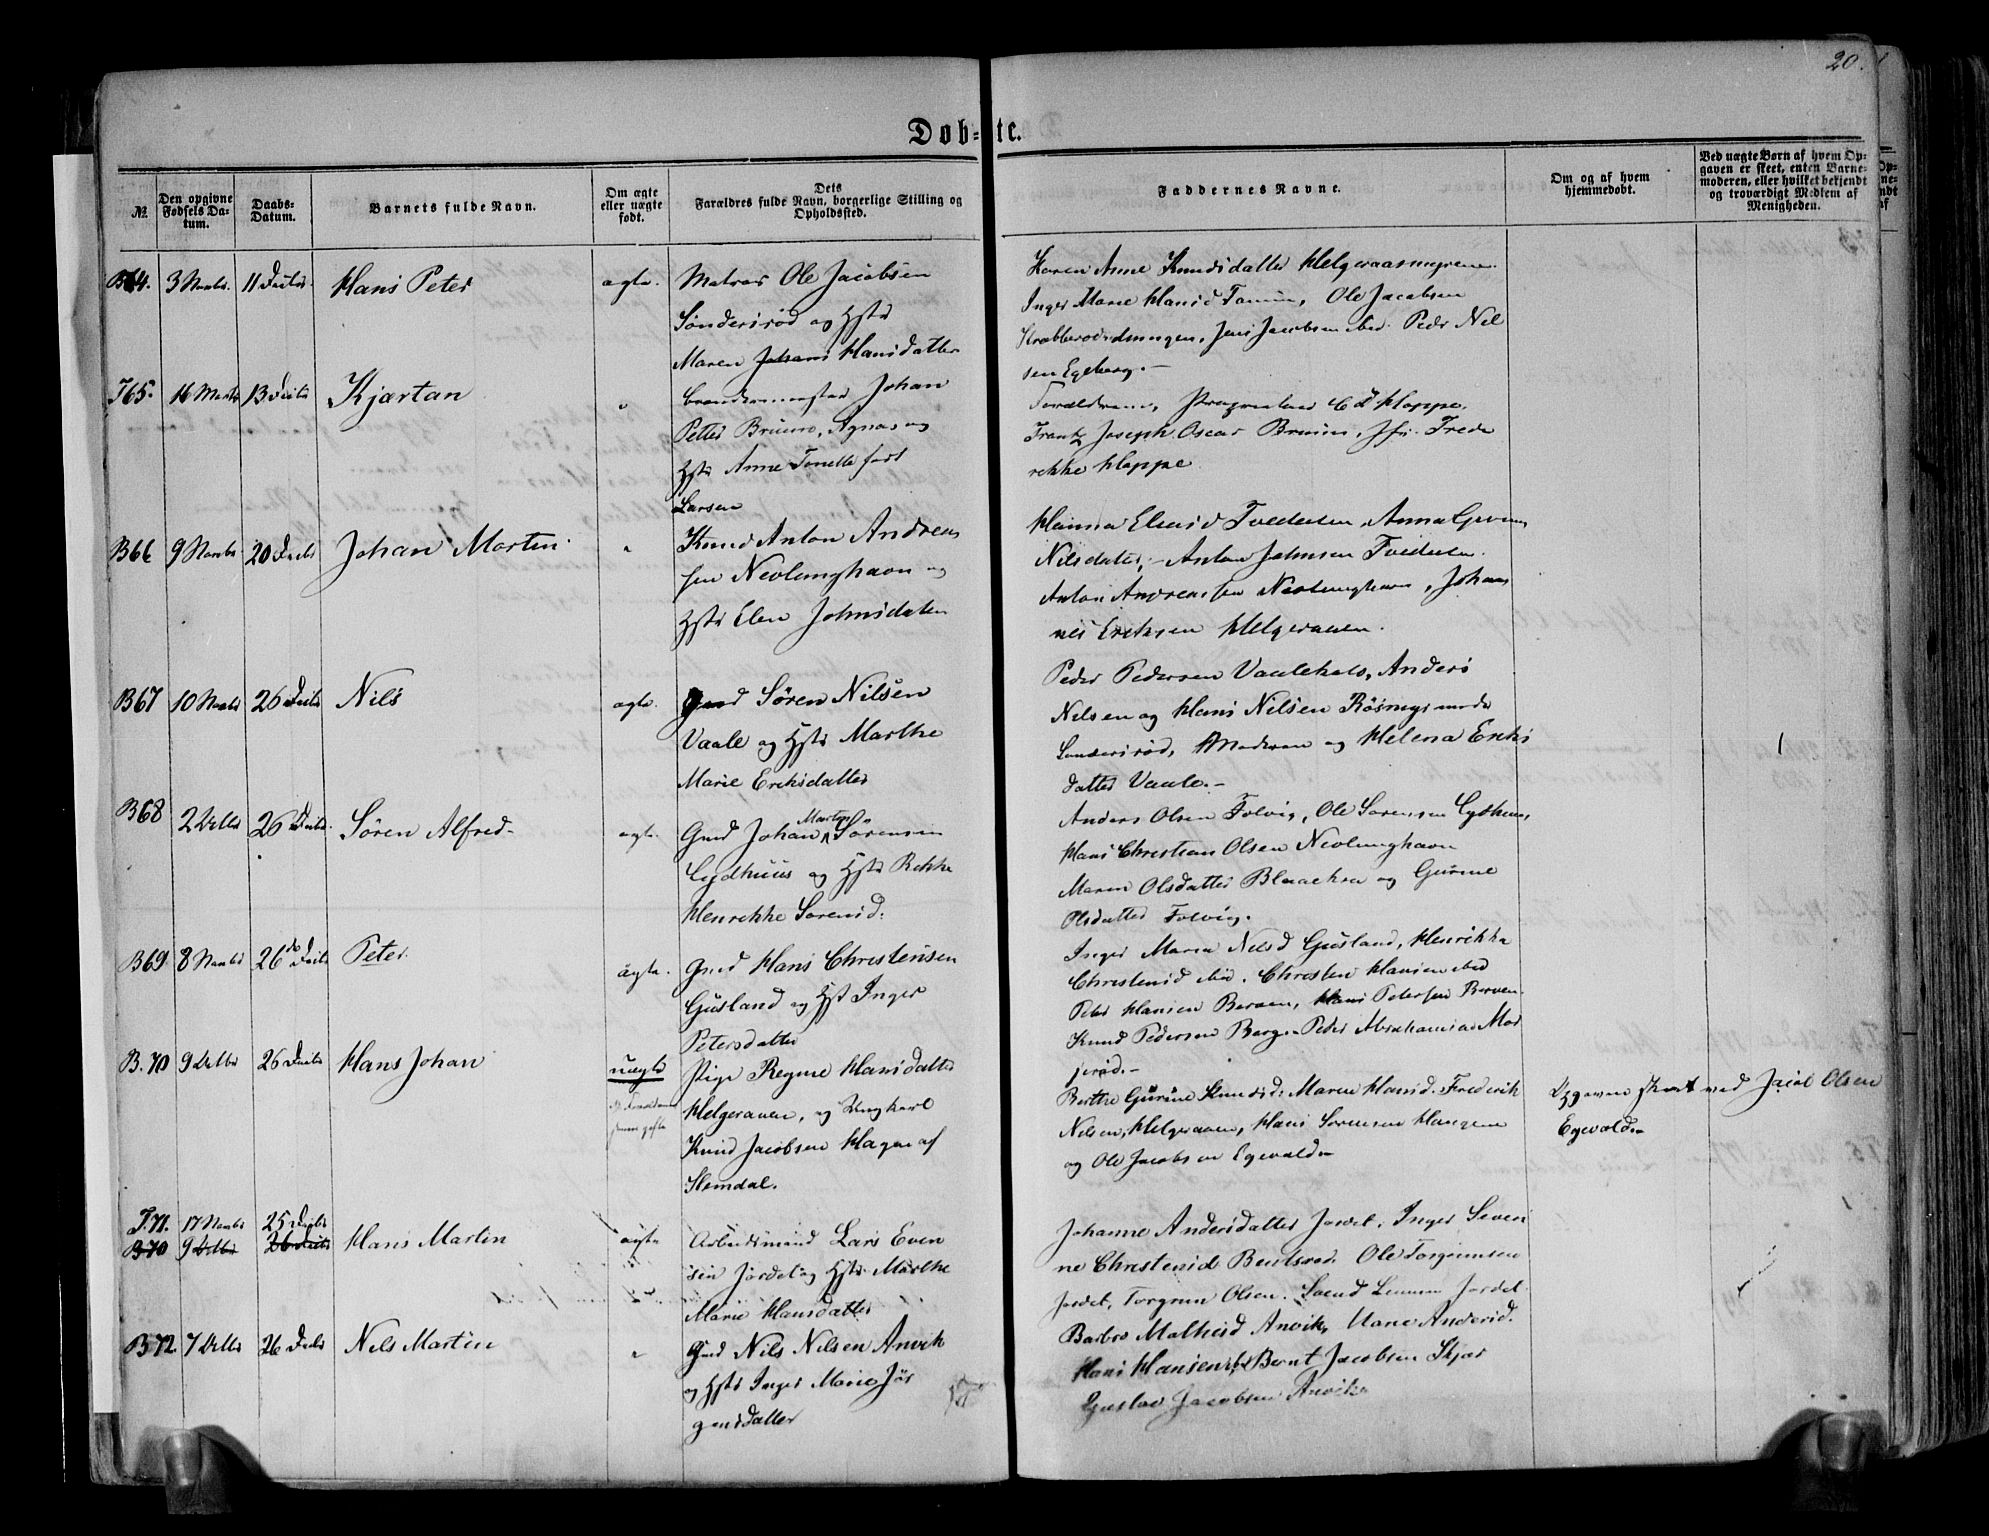 20.
Døb-te.
№
Den opgivne Fødsels Datum.
Daabs-Datum.
Barnets fulde Navn.
Om ægte eller uægte født.
Dets Farældres fulde Navn, borgerlige Stilling og Opholdsted.
Faddernes Navne.
Om og af hvem hjemmedobt.
Ved uægte Børn af hvem Opgaven er skeet, enten Barnemoderen, eller hvilket bekjendt og troværdigt Medlem af Menigheden.
B64. 3 Novbr. 11 Decbr. Hans Peter ægte. Matros Ole Jacobsen
Sönderiröd og Hstr
Maren Johans Hansdatter
Karen Anne Knudsdatter
Inger Marie Hansd Ole Jacobsen
Jens Jacobsen ibd. Peder Nil
sen Egeberg.-
T65. 16 13 Decbr Kjartan " Johan
Petter Bruun, Agnas og
Hstr Anne Tonette fört
Larsen
Forældrene, Proprietær Hoppe.
Frantz Joseph Oscar Bruun, Jfr. Frede
rikke Hoppe
B66 9 Novbr 20 Decbr Johan Martin. " Knud Anton Andreas
sen Nevlunghavn og
Hstr Elen Johnsdatter
Hanna Tvedersen, Anna
Nilsdatter,- Anton Johnsen Tvedersen.
Anton Andreassen Nevlunghavn, Johan
nes Eriksen Helgeraaen.
B67 10 Novbr 26 Decbr Nils ægte. Gmd Sören Nilsen
Vaale og Hstr Marthe
Marie Eriksdatter
Peder Pedersen Vaalehals, Anders
Nilsen og Hans Nilsen
Sönderiröd, Moderen og Helena Eriks
datter Vaale.-
B68 2 Decbr 26 Decbr. Sören Alfred- ægte. Gmd Johan Martin Sörensen
Lydhuus og Hstr Rikke
Henrikke Sörensd:
Anders Olsen Folvig, Ole Sörensen Lydhuus,
Hans Christian Olsen Nevlunghavn
Maren Olsdatter og Gurine
Olsdatter Folvig.
B69 8 Novbr 26 Decbr Peter. ægte. Gmd Hans Christensen
Gusland og Hst Inger
Petersdatter
Inger Maria Nilsd Gusland, Henrikke
Christensd ibd. Christen Hansen ibd
Peter Hansen Berven, Hans Petersen Berven.
Knud Pedersen Berg. Peder Abrahamsen Mör
jeröd.-
B.70 9 Decbr 26 Decbr Hans Johan uægte Pige Regine Hansdatter
Helgeraaen, og Ungkarl
Knud Jacobsen Hagen af
Slemdal.
Berthe Gurine Knudsd: Maren Hansd. Frederik
Nilsen, Helgeraaen, Hans Sörensen Haugene
og Ole Jacobsen Egevald-
Opgaven skeet ved Jacob Olsen
Egevald-
T.71. 17 Novbr 25 Decbr
B70 9 Decbr 26 Decbr Hans Martin ægte Arbeidsmand Lars Even
sen Jordet og Hstr Marthe
Marie Hansdatter
Johanne Andersdatter Jordet, Inger Seven
ne Christensd Bentsrød. Ole Torgrimsen
Jordet, Torgrim Olsen. Svend Jordet.
B72. 7 Decbr 26 Decbr Nils Martin " Gmd Nils Nilsen Anvik
og Hstr Inger Marie Jör
gensdatter
Barbro Mathisd Anvik, Maren Andersd.
Hans Hansen ibd Bernt Jacobsen Skjær
Gustav Jacobsen Anvik.